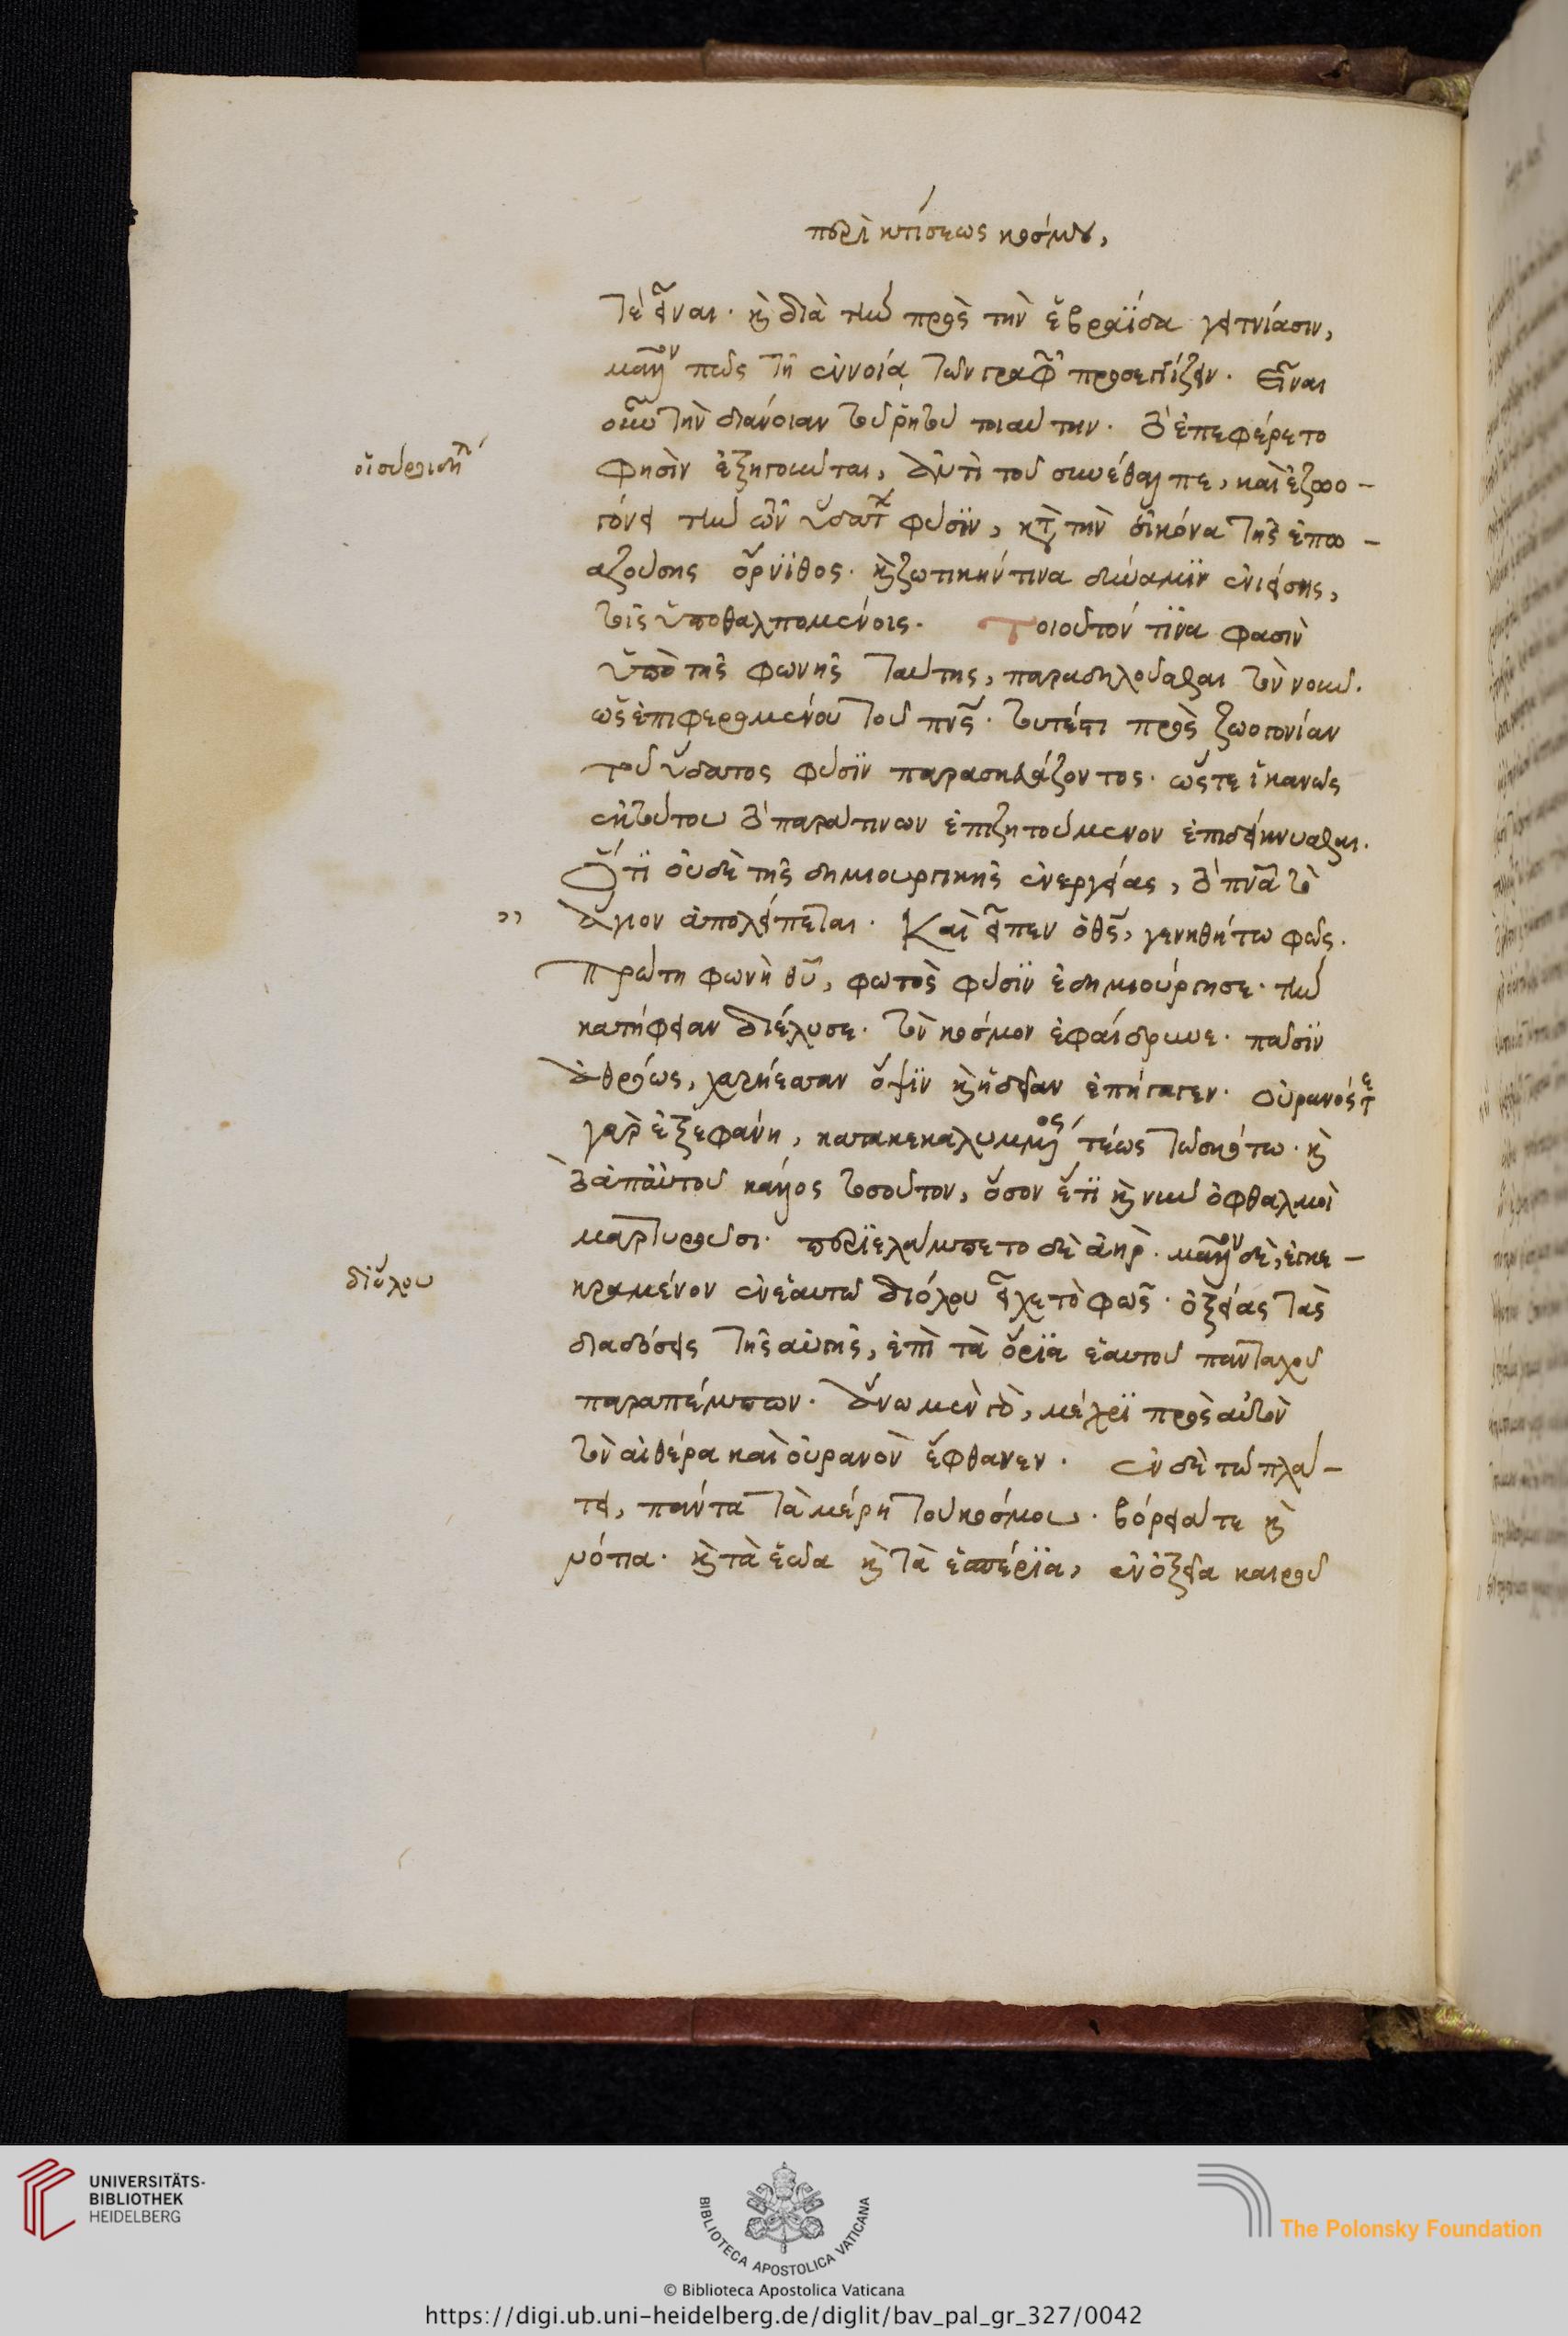 περὶ κτίσεως κόσμου,
τε εἶναι· καὶ διὰ τὴν πρὸς τὴν ἑβραΐδα γειτνίασιν,
μᾶλλον πως τῆ ἐννοία τῶν γραφῶν προσεγγίζειν. Εἶναι
οὖν τὴν διάνοιαν τοῦ ῥητοῦ τοιαύτην. τὸ ἐπεφέρετο
οἱ σύροι
φησὶν ἐξηγοῦνται, ἀντὶ τοῦ συνέθαλπε, καὶ ἐζωο-
γόνει τὴν τῶν ὑδάτων φύσιν, κατὰ τὴν εἰκόνα τῆς ἐπω-
αζούσης ὄρνιθος· καὶ ζωτικήν τινα δύναμιν ἐνιείσης,
τοῖς ὑποθαλπομένοις. Τοιοῦτόν τινα φασὶν
ὑπὸ τῆς φωνῆς ταύτης, παραδηλοῦσθαι τὸν νοῦν.
ὡς ἐπιφερομένου τοῦ πνς· τουτέστι πρὸς ζωογονίαν
τοῦ ὕδατος φύσιν παρασκευάζοντος· ὥστε ἱκανῶς
ἐκ τούτου τὸ παρά τινων ἐπιζητούμενον ἐπιδείκνυσθαι.
Ὅτι οὐδὲ τῆς δημιουργικῆς ἐνεργείας, τὸ πνα τὸ
ἅγιον ἀπολείπεται. Καὶ εἶπεν ὁ θς, γενηθήτω φῶς.
Πρώτη φωνὴ θυ, φωτὸς φύσιν ἐδημιούργησε· τὴν
κατήφειαν διέλυσε· τὸν κόσμον ἐφαίδρυνε· πᾶσιν
ἀθρόως, χαρίεσσαν ὄψιν καὶ ἡδεῖαν ἐπήγαγεν. οὐρανός τε
γὰρ ἐξεφάνη, κατακεκαλυμμένος τέως τῶ σκότω· καὶ
τὸ ἀπ' αὐτοῦ κάλλος τοσοῦτον, ὅσον ἔτι καὶ νῦν ὀφθαλμοὶ
μαρτυροῦσι. περιελάμπετο δὲ ἀὴρ. μᾶλλον δὲ, ἐγκε-
διόλου
κραμένον ἐν ἑαυτῶ διόλου εἶχε τὸ φῶς· ὀξείας τὰς
διαδόσεις τῆς αὐγῆς, ἐπὶ τὰ ὅρια ἑαυτοῦ πανταχοῦ
παραπέμπων. ἄνω μὲν γὰρ, μέχρι πρὸς αὐτὸν
τὸν αἰθέρα καὶ οὐρανὸν ἔφθανεν. ἐν δὲ τῶ πλά-
τει, πάντα τὰ μέρη τοῦ κόσμου· βόρειά τε καὶ
νότια· καὶ τὰ ἑῶα καὶ τὰ ἑσπέρια, ἐν ὀξεία καιροῦ
UNIVERSITÄTS-
BIBLIOTHEK
HEIDELBERG
BIBLIOTECA APOSTOLICA VATICANA
The Polonsky Foundation
© Biblioteca Apostolica Vaticana
https://digi.ub.uni-heidelberg.de/diglit/bav_pal_gr_327/0042